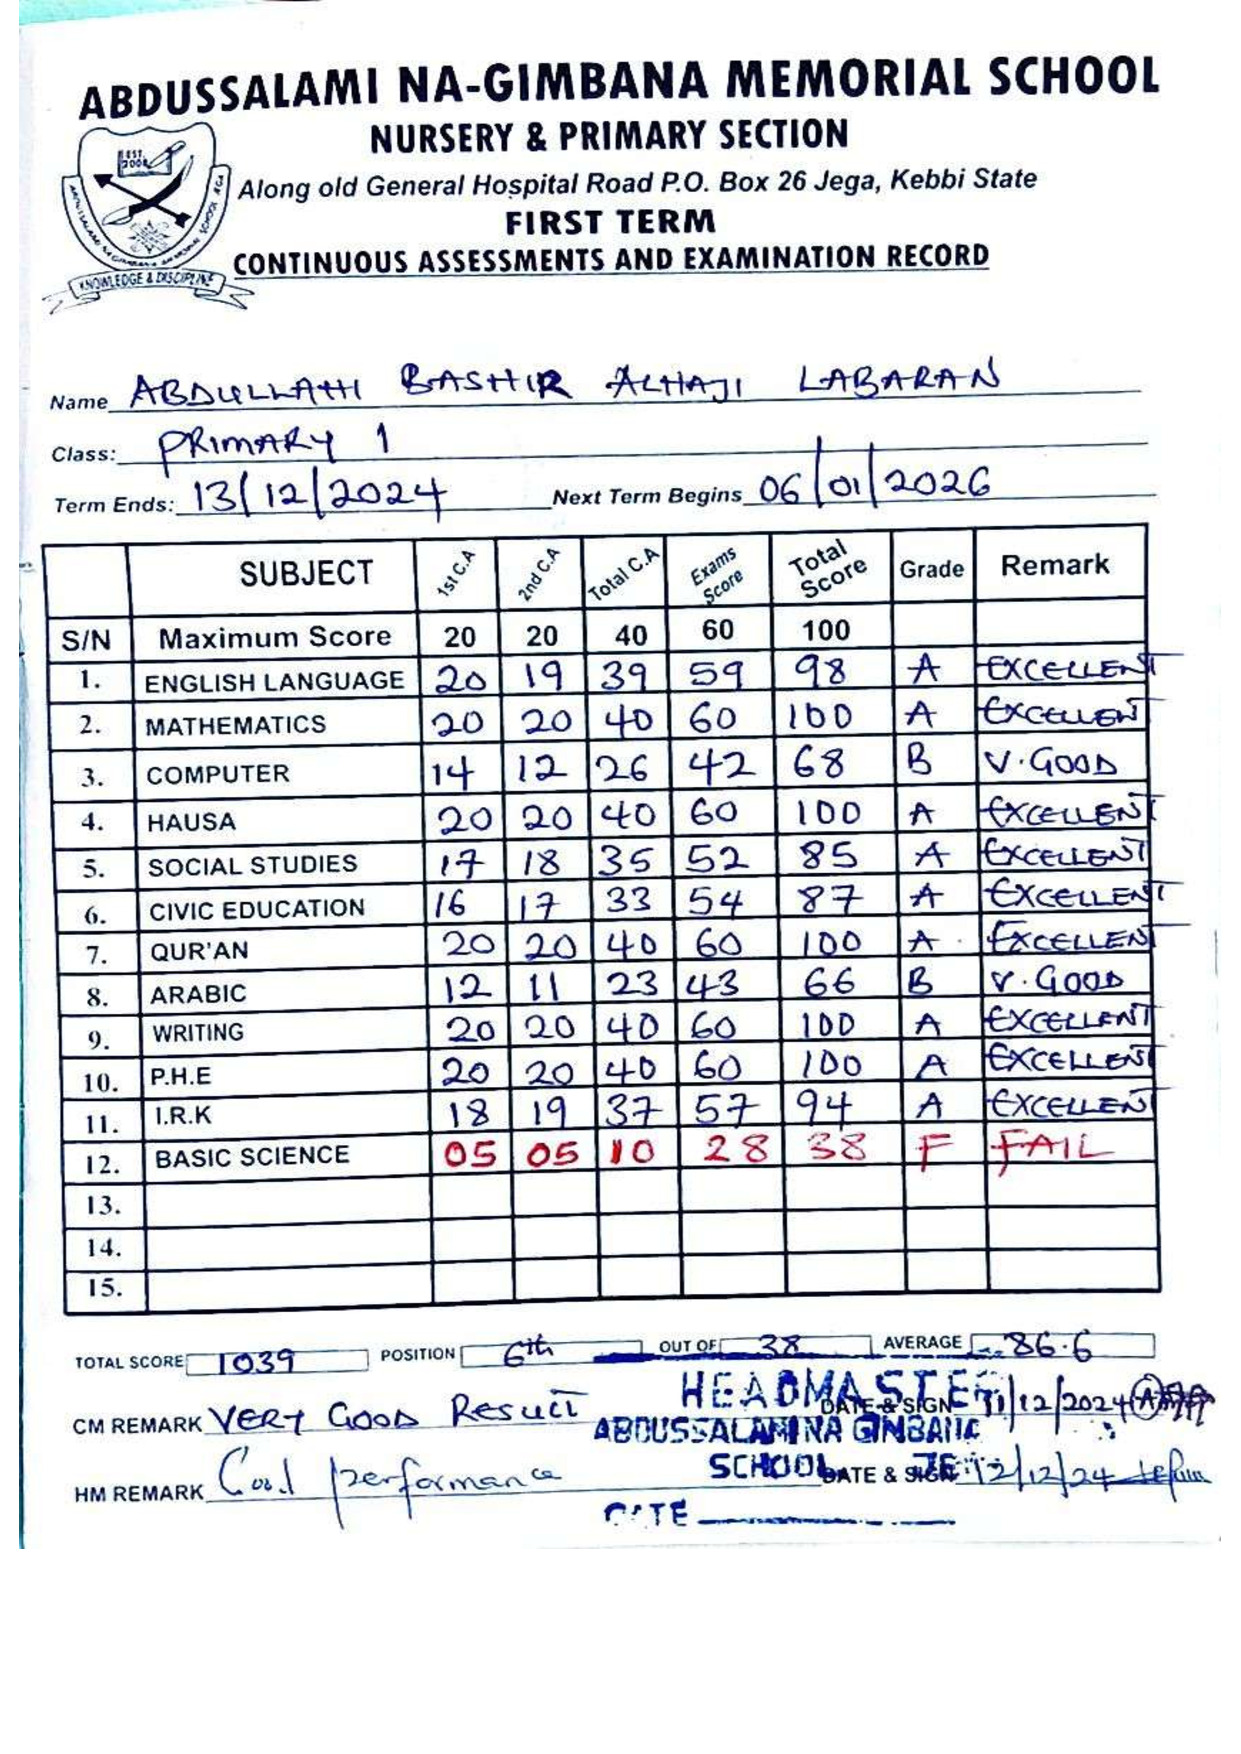 ABDUSSALAMI NA-GIMBANA MEMORIAL SCHOOL
NURSERY & PRIMARY SECTION
EST. 2008
KNOWLEDGE & DISCIPLINE
Along old General Hospital Road P.O. Box 26 Jega, Kebbi State
FIRST TERM
CONTINUOUS ASSESSMENTS AND EXAMINATION RECORD
Name ABDULLAHI BASHIR ALHAJI LABARAN
Class: PRIMARY 1
Term Ends: 13/12/2024 Next Term Begins 06/01/2026
SUBJECT 1st C.A 2nd C.A Total C.A Exams Score Total Score Grade Remark
S/N Maximum Score 20 20 40 60 100
1. ENGLISH LANGUAGE 20 19 39 59 98 A EXCELLENT
2. MATHEMATICS 20 20 40 60 100 A EXCELLENT
3. COMPUTER 14 12 26 42 68 B V.GOOD
4. HAUSA 20 20 40 60 100 A EXCELLENT
5. SOCIAL STUDIES 17 18 35 52 85 A EXCELLENT
6. CIVIC EDUCATION 16 17 33 54 87 A EXCELLENT
7. QUR'AN 20 20 40 60 100 A EXCELLENT
8. ARABIC 12 11 23 43 66 B V.GOOD
9. WRITING 20 20 40 60 100 A EXCELLENT
10. P.H.E 20 20 40 60 100 A EXCELLENT
11. I.R.K 18 19 37 57 94 A EXCELLENT
12. BASIC SCIENCE 05 05 10 28 38 F FAIL
13.
14.
15.
TOTAL SCORE 1039 POSITION 6th OUT OF 38 AVERAGE 86.6
HEADMASTER
CM REMARK VERY GOOD RESULT DATE & SIGN 11/12/2024
ABDUSSALAMI NA GIMBANA
SCHOOL
HM REMARK Good performance DATE & SIGN 12/12/24
DATE